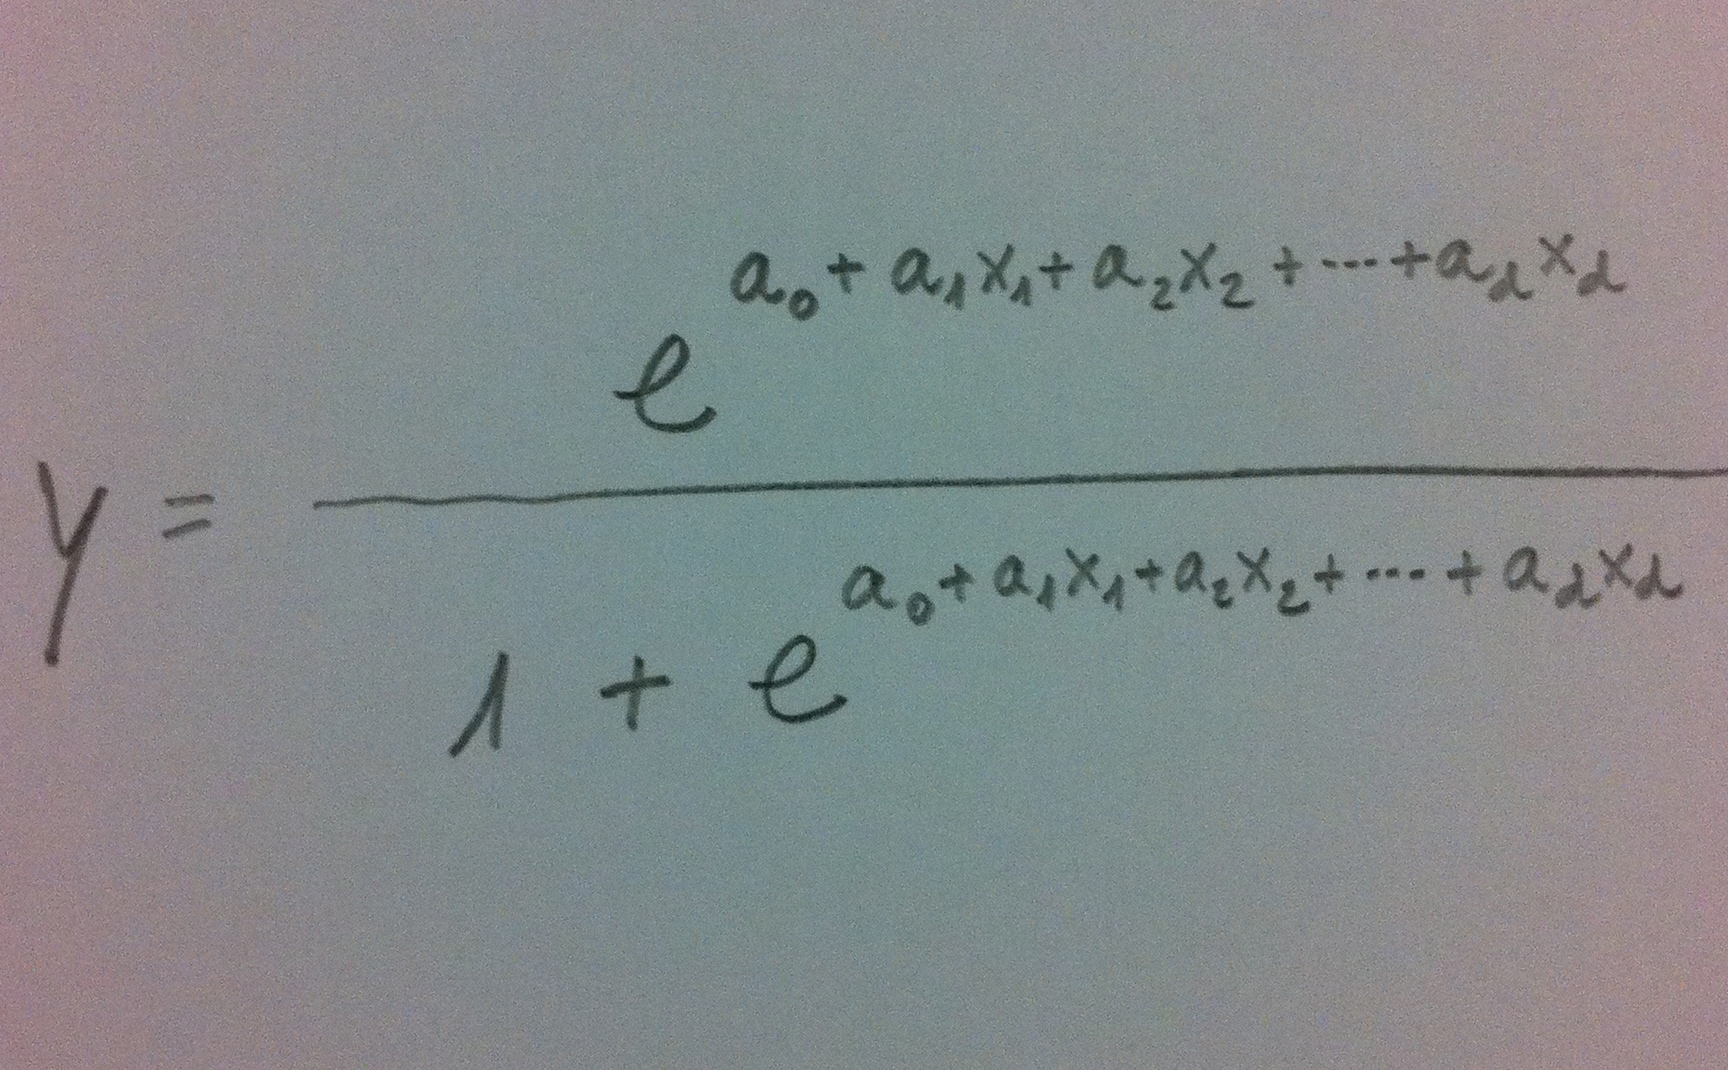 y = e^{a_0 + a_1x_1 + a_2x_2 + ... + a_dx_d} / 1 + e^{a_0 + a_1x_1 + a_2x_2 + ... + a_dx_d}